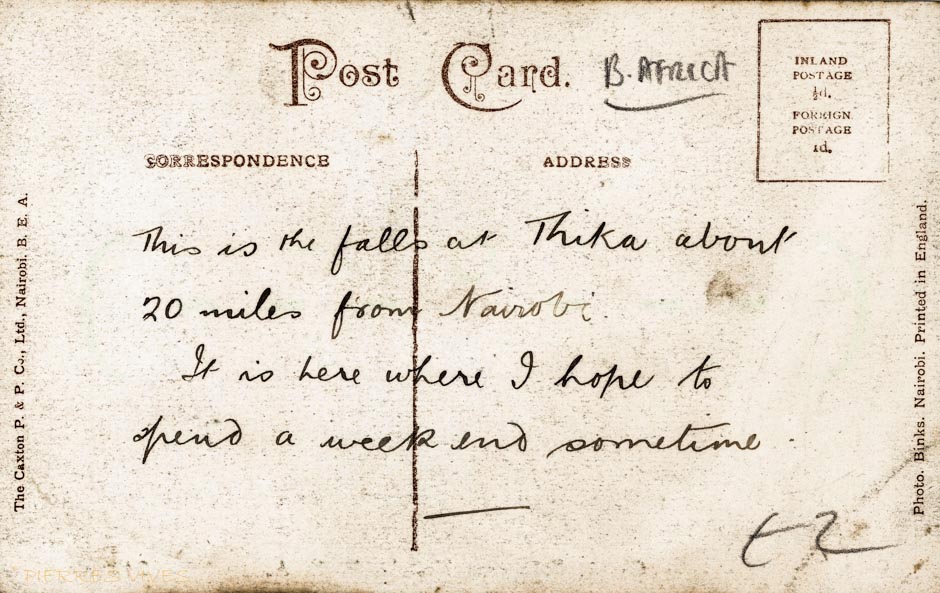 Post Card.
B. AFRICA
INLAND
POSTAGE
½d.
FOREIGN
POSTAGE
1d.
CORRESPONDENCE
ADDRESS
This is the falls at Thika about
20 miles from Nairobi.
It is here where I hope to
spend a week end sometime.
The Caxton P. & P. Co., Ltd., Nairobi. B. E. A.
Photo. Binks. Nairobi. Printed in England.
PIERRES VIVES